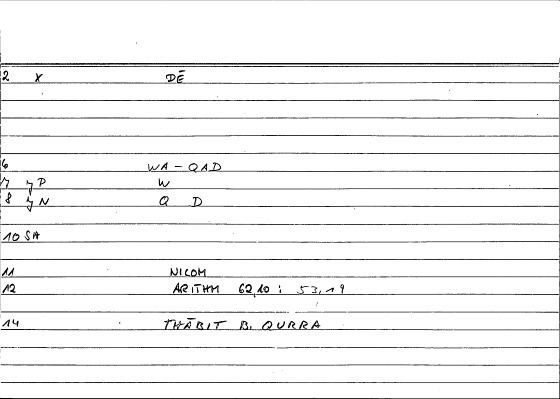 2 X DĒ
6 WA-QAD
7 yP W
8 yN Q D
10 SA
11 NICOM
12 ARITHM 62,10 : 53,19
14 THĀBIT B. QURRA